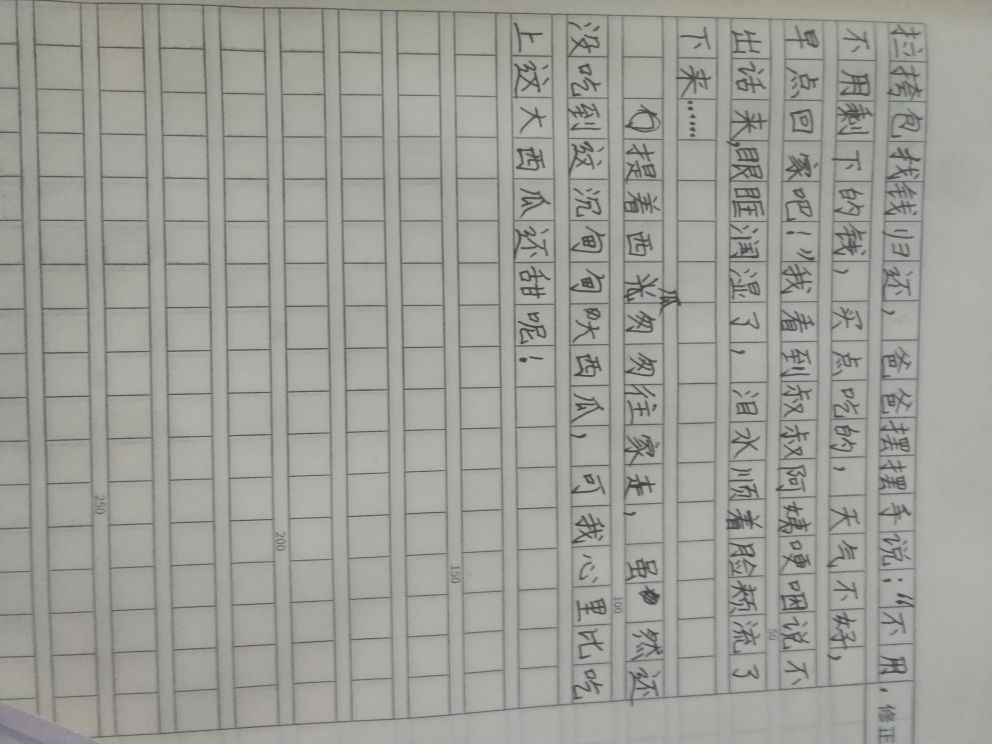 拦挎包找钱归还，爸爸摆摆手说：“不用，
不用剩下的钱，买点吃的，天气不好，
早点回家吧！”我看到叔叔阿姨哽咽说不
出话来，眼眶润湿了，泪水顺着脸颊流了
下来……
提着西瓜匆匆往家走，虽然还
没吃到这沉甸甸大西瓜，可我心里比吃
上这大西瓜还甜呢！
修正
50
100
150
200
250